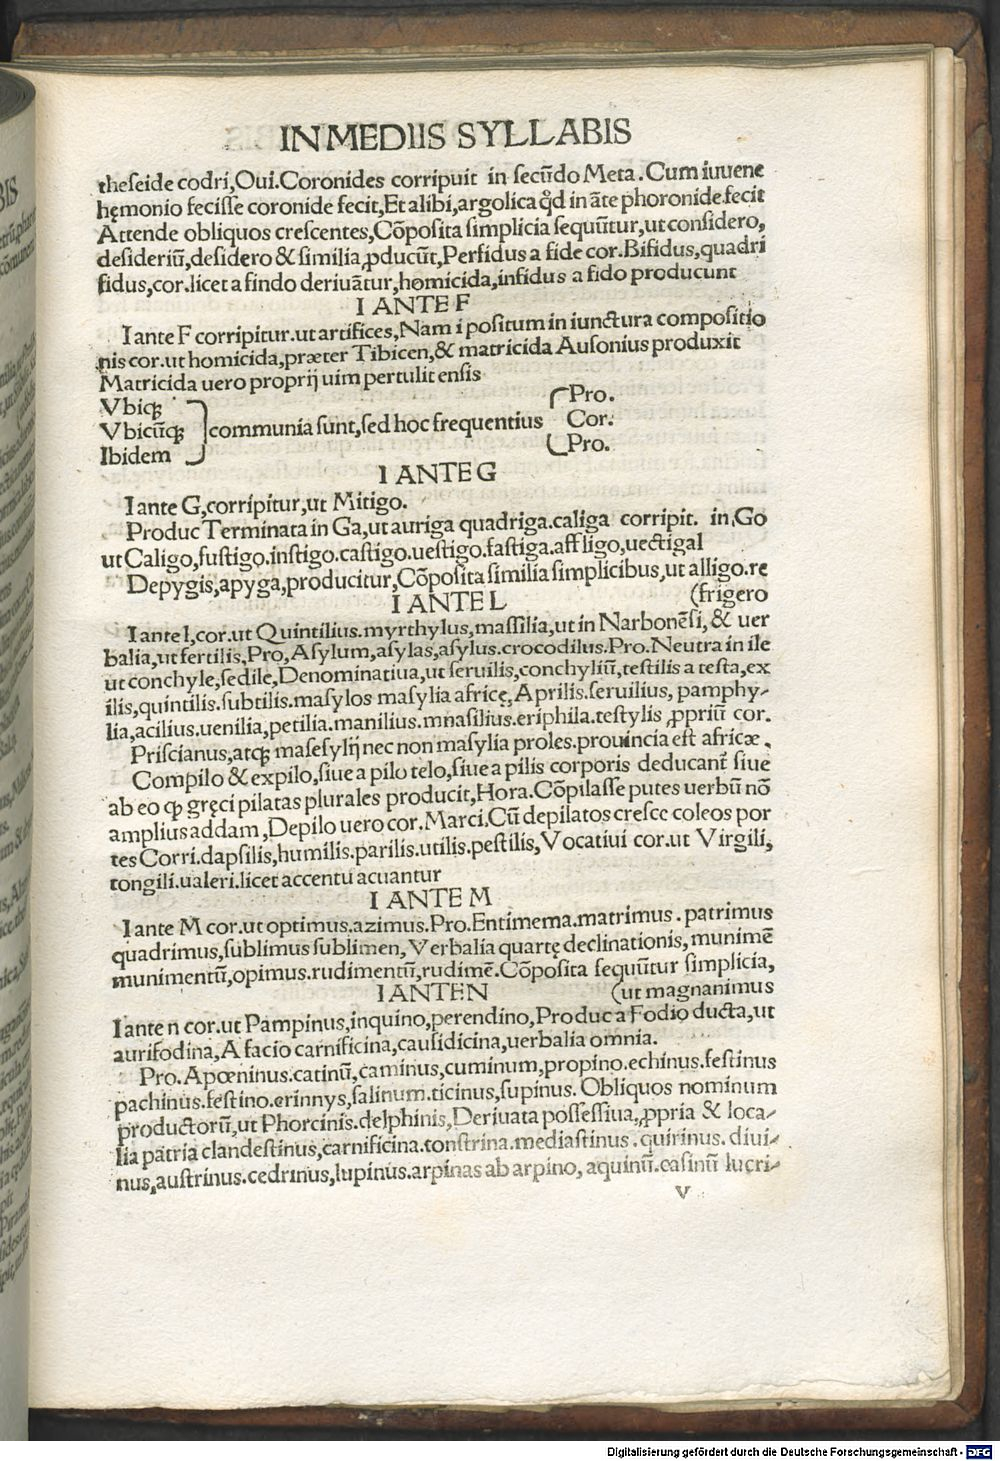 IN MEDIIS SYLLABIS
theseide codri,Oui.Coronides corripuit in secūdo Meta.Cum iuuene
hęmonio fecisse coronide fecit,Et alibi,argolica qd̄ in āte phoronide.fecit
Attende obliquos crescentes,Cōposita simplicia sequūtur,ut considero,
desideriū,desidero & similia ꝓducūt,Perfidus a fide cor.Bifidus,quadri
fidus,cor.licet a findo deriuātur,homicida,infidus a fido producunt
I ANTE F
I ante F corripitur.ut artifices,Nam i positum in iunctura compositio
nis cor.ut homicida,præter Tibicen,& matricida Ausonius produxit
Matricida uero proprij uim pertulit ensis
Vbiqꝫ
Vbicūqꝫ communia sunt,sed hoc frequentius
Ibidem
Pro.
Cor.
Pro.
I ANTE G
I ante G,corripitur,ut Mitigo.
Produc Terminata in Ga,ut auriga quadriga.caliga corripit. in,Go
ut Caligo,fustigo.instigo.castigo.uestigo.fastiga.affligo,uectigal
Depygis,apyga,producitur,Cōposita similia simplicibus,ut alligo.re
(frigero
I ANTE L
I ante l,cor.ut Quintilius.myrthylus,massilia,ut in Narbonēsi,& uer
balia,ut fertilis,Pro,Asylum,asylas,asylus.crocodilus.Pro.Neutra in ile
ut conchyle,sedile,Denominatiua,ut seruilis,conchyliū,testilis a testa,ex
ilis,quintilis.subtilis.masylos masylia africę,Aprilis.seruilius, pamphy-
lia,acilius.uenilia,petilia.manilius.mnasilius.eriphila.testylis ꝓpriū cor.
Priscianus,atqꝫ masesylij nec non masylia proles.prouincia est africæ.
Compilo & expilo,siue a pilo telo,siue a pilis corporis deducant̄ siue
ab eo ꝙ gręci pilatas plurales producit,Hora.Cōpilasse putes uerbū nō
amplius addam,Depilo uero cor.Marci.Cū depilatos cresce coleos por
tes Corri.dapsilis,humilis.parilis.utilis.pestilis,Vocatiui cor.ut Virgili,
tongili.ualeri.licet accentu acuantur
I ANTE M
I ante M cor.ut optimus.azimus.Pro.Entimema.matrimus.patrimus
quadrimus,sublimus sublimen,Verbalia quartę declinationis,munimē
munimentū,opimus.rudimentū,rudimē.Cōposita sequūtur simplicia,
(ut magnanimus
I ANTE N
I ante n cor.ut Pampinus,inquino,perendino,Produc a Fodio ducta,ut
aurifodina,A facio carnificina,causidicina,uerbalia omnia.
Pro.Apœninus.catinū,caminus,cuminum,propino.echinus.festinus
pachinus.festino.erinnys,salinum.ticinus,supinus.Obliquos nominum
productorū,ut Phorcinis.delphinis,Deriuata possessiua,ꝓpria & loca-
lia patria clandestinus,carnificina.tonstrina.mediastinus.quirinus.diui-
nus,austrinus.cedrinus,lupinus.arpinas ab arpino, aquinū.casinū lucri-
v
Digitalisierung gefördert durch die Deutsche Forschungsgemeinschaft - DFG